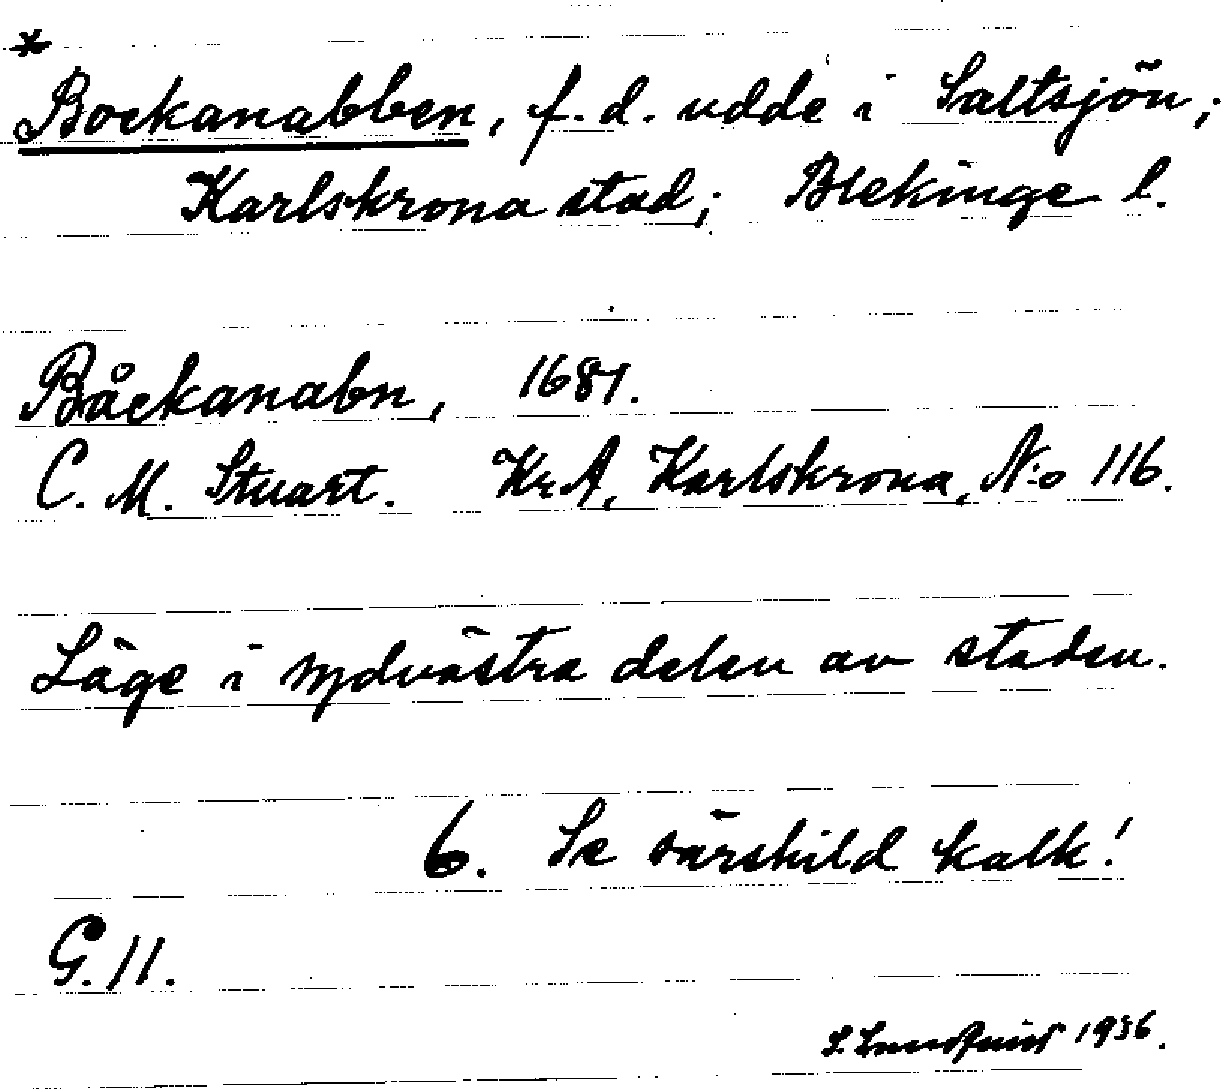 *
Bockanabben, f.d. udde i Saltsjön;
Karlskrona stad; Blekinge l.
Båckanabn, 1681.
C. M. Stuart. Kr.A, Karlskrona, N:o 116.
Läge i sydvästra delen av staden.
6. Se särskild kalk!
G. 11.
S. Lundquist 1936.